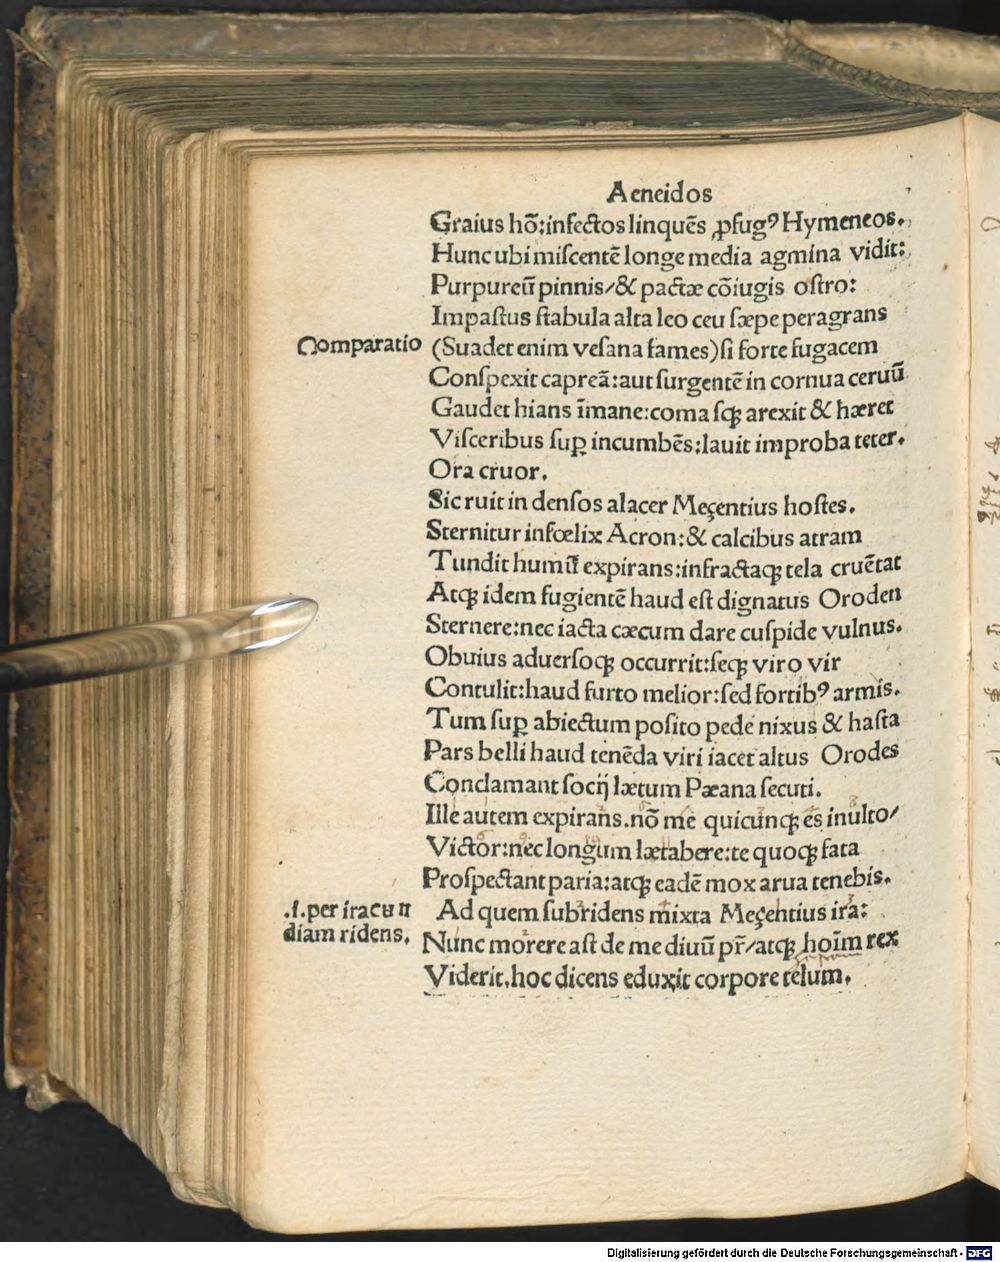 Aeneidos
Graius hõ:infectos linquẽs ꝓfugꝰ Hymeneos.
Hunc ubi miſcentẽ longe media agmina vidit:
Purpureũ pinnis/& pactæ cõiugis oſtro:
Impaſtus ſtabula alta leo ceu ſæpe peragrans
Comparatio
(Suadet enim veſana fames)ſi forte fugacem
Conſpexit capreã:aut ſurgentẽ in cornua ceruũ
Gaudet hians ĩmane:coma ſqꝫ arexit & hæret
Viſceribus ſuꝑ incumbẽs:lauit improba teter.
Ora cruor.
Sic ruit in denſos alacer Meçentius hoſtes.
Sternitur infœlix Acron:& calcibus atram
Tundit humũ expirans:infractaqꝫ tela cruẽtat
Atqꝫ idem fugientẽ haud eſt dignatus Oroden
Sternere:nec iacta cæcum dare cuſpide vulnus.
Obuius aduerſoqꝫ occurrit:ſeqꝫ viro vir
Contulit:haud furto melior:ſed fortibꝰ armis.
Tum ſuꝑ abiectum poſito pede nixus & haſta
Pars belli haud tenẽda viri iacet altus Orodes
Conclamant ſocij lætum Pæana ſecuti.
Ille autem expirans.nõ me quicunqꝫ es inulto/
Victor:nec longum lætabere:te quoqꝫ fata
Proſpectant paria:atqꝫ eadẽ mox arua tenebis.
.i.per iracun
diam ridens.
Ad quem ſubridens mixta Meçentius ira:
Nunc morere aſt de me diuũ pr̃/atqꝫ hoĩm rex
Viderit.hoc dicens eduxit corpore telum.
Digitalisierung gefördert durch die Deutsche Forschungsgemeinschaft - DFG